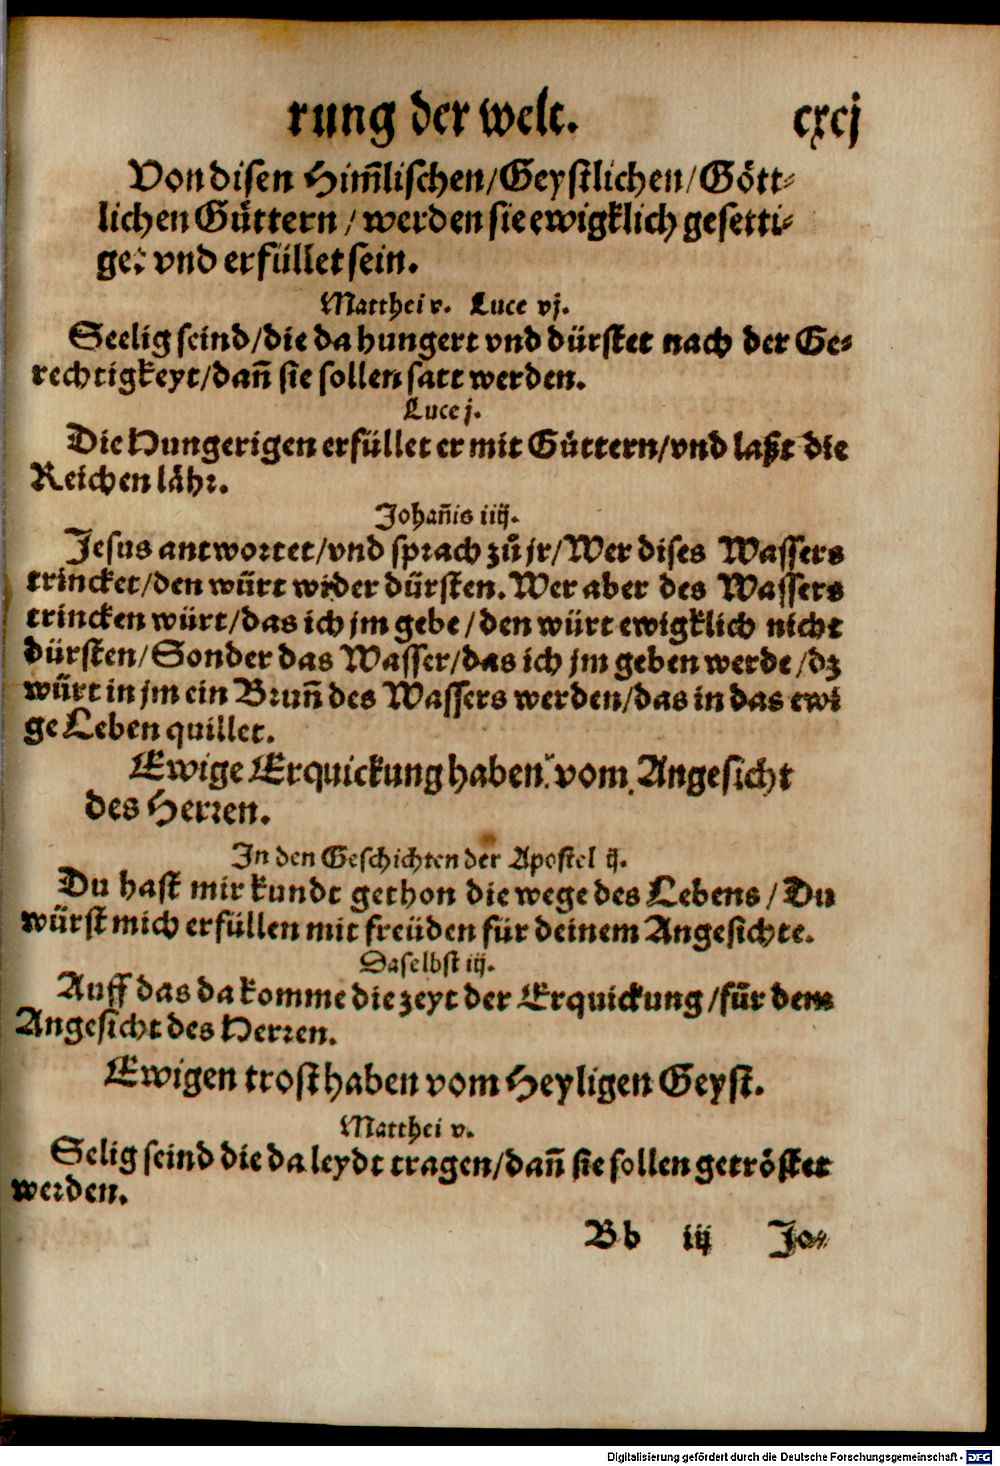 rung der welt. cxcj
Von disen Him̃lischen/Geystlichen/Gött-
lichen Güttern/ werden sie ewigklich gesetti-
get vnd erfüllet sein.
Matthei v. Luce vj.
Seelig seind/die da hungert vnd dürstet nach der Ge-
rechtigkeyt/dañ sie sollen satt werden.
Luce j.
Die Hungerigen erfüllet er mit Güttern/vnd laßt die
Reichen lähr.
Johañis iiij.
Jesus antwortet/vnd sprach zů jr/Wer dises Wassers
trincket/den würt wider dürsten. Wer aber des Wassers
trincken würt/das ich jm gebe/den würt ewigklich nicht
dürsten/Sonder das Wasser/das ich jm geben werde/dz
würt in jm ein Brun̄ des Wassers werden/das in das ewi
ge Leben quillet.
Ewige Erquickung haben vom Angesicht
des Herren.
In den Geschichten der Apostel ij.
Du hast mir kundt gethon die wege des Lebens/Du
würst mich erfüllen mit freüden für deinem Angesichte.
Daselbst iij.
Auff das da komme die zeyt der Erquickung/für dem
Angesicht des Herren.
Ewigen trost haben vom Heyligen Geyst.
Matthei v.
Selig seind die da leydt tragen/dañ sie sollen getröstet
werden.
Bb iij Jo-
Digitalisierung gefördert durch die Deutsche Forschungsgemeinschaft - DFG